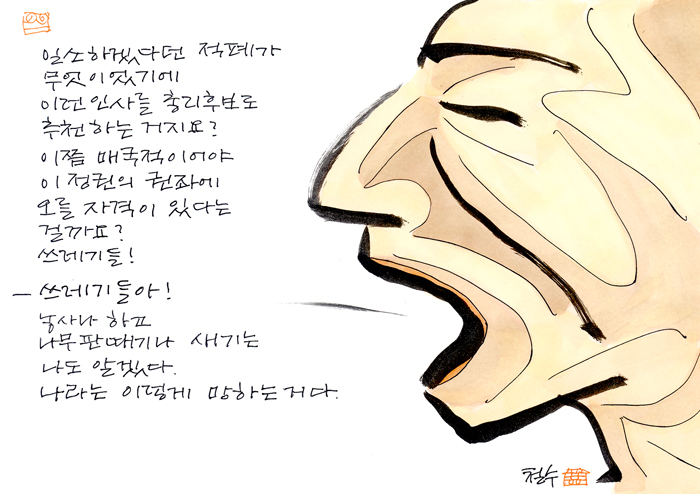 일소하겠다던 적폐가
무엇이었기에
이런 인사를 총리후보로
추천하는 거지요?
이쯤 매국적이어야
이 정권의 권좌에
오를 자격이 있다는
걸까요?
쓰레기들!
— 쓰레기들아!
농사나 하고
나무판때기나 새기는
나도 알겠다.
나라는 이렇게 망하는거다.
철수